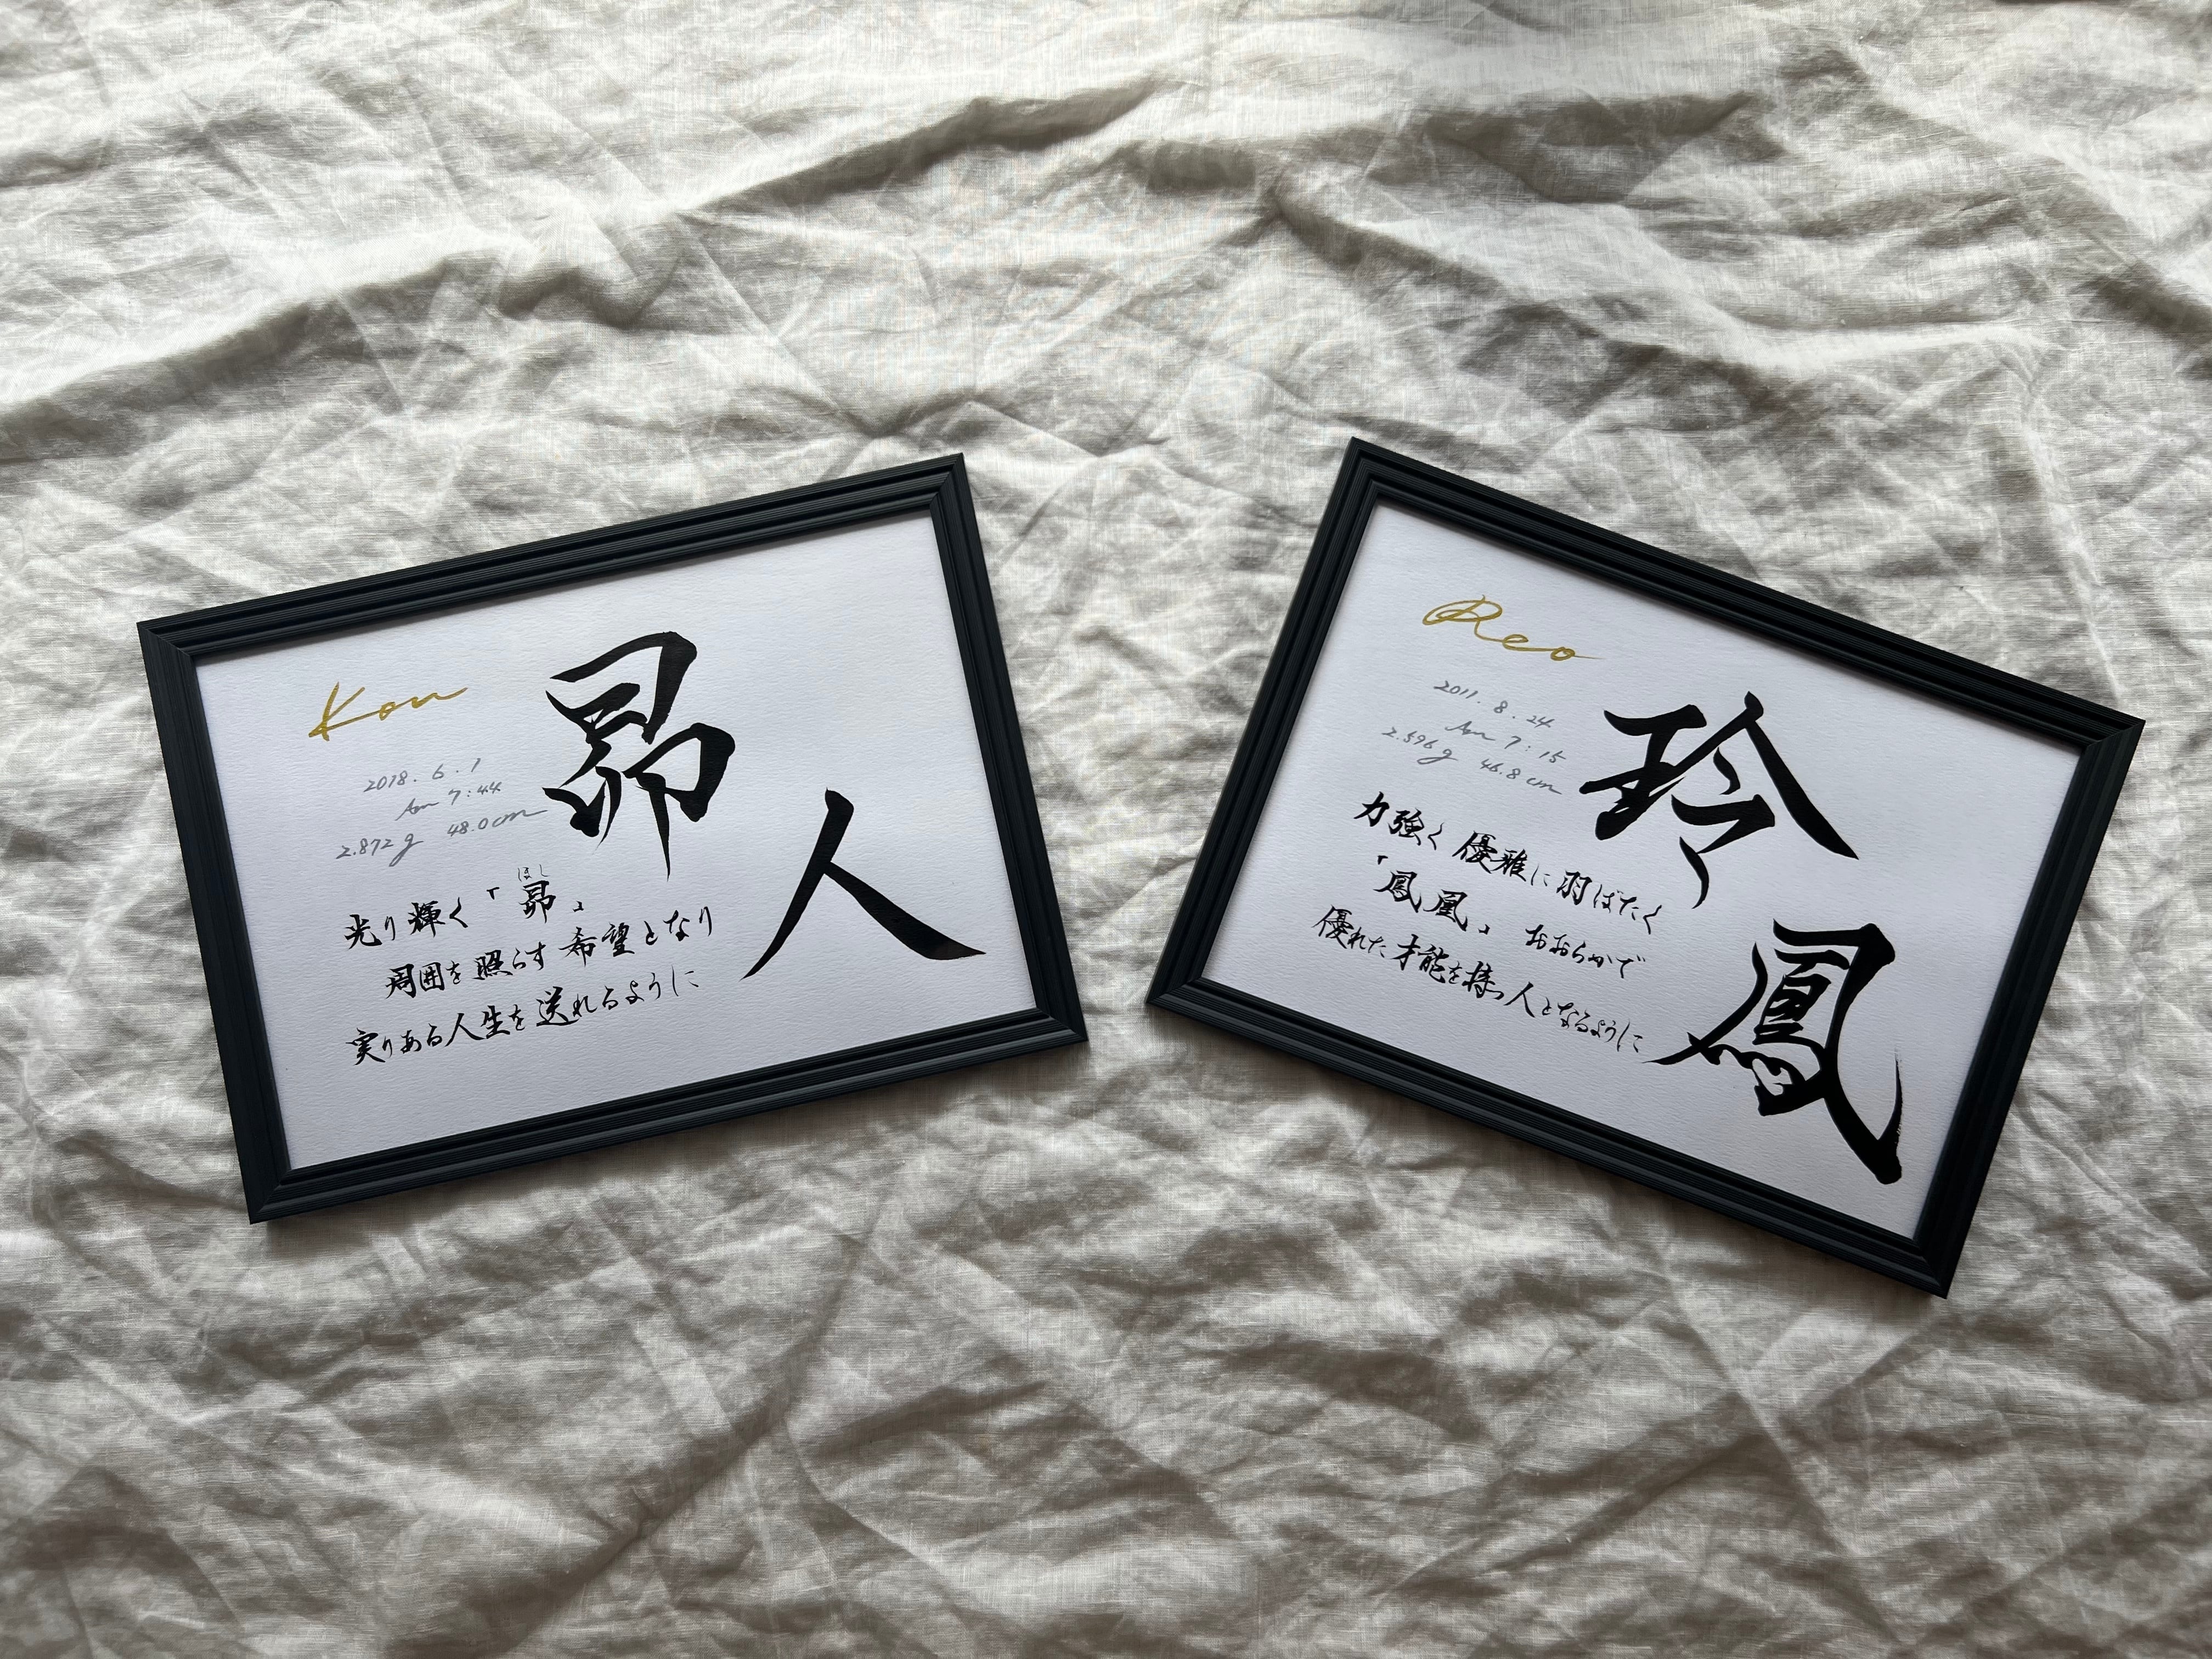 Kou
2018.6.1
Am 7:44
2.872g 48.0cm
昴人
ほし
光り輝く「昴」
周囲を照らす希望となり
実りある人生を送れるように
Reo
2011.8.24
Am 7:15
2.596g 46.8cm
玲鳳
力強く優雅に羽ばたく
「鳳凰」おおらかで
優れた才能を持つ人となるように